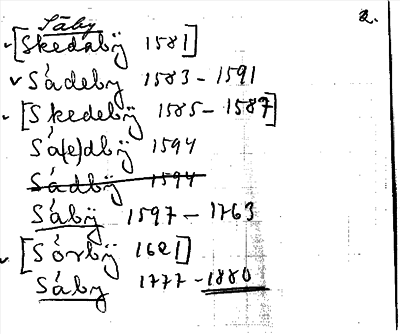 2.
Såby
[Skedabÿ 1581]
Sådeby 1583 - 1591
[Skedebÿ 1585 - 1587]
Så(e)dbÿ 1594
Sådbÿ 1594
Såbÿ 1597 - 1763
[Sórbÿ 1621]
Såby 1777 - 1880